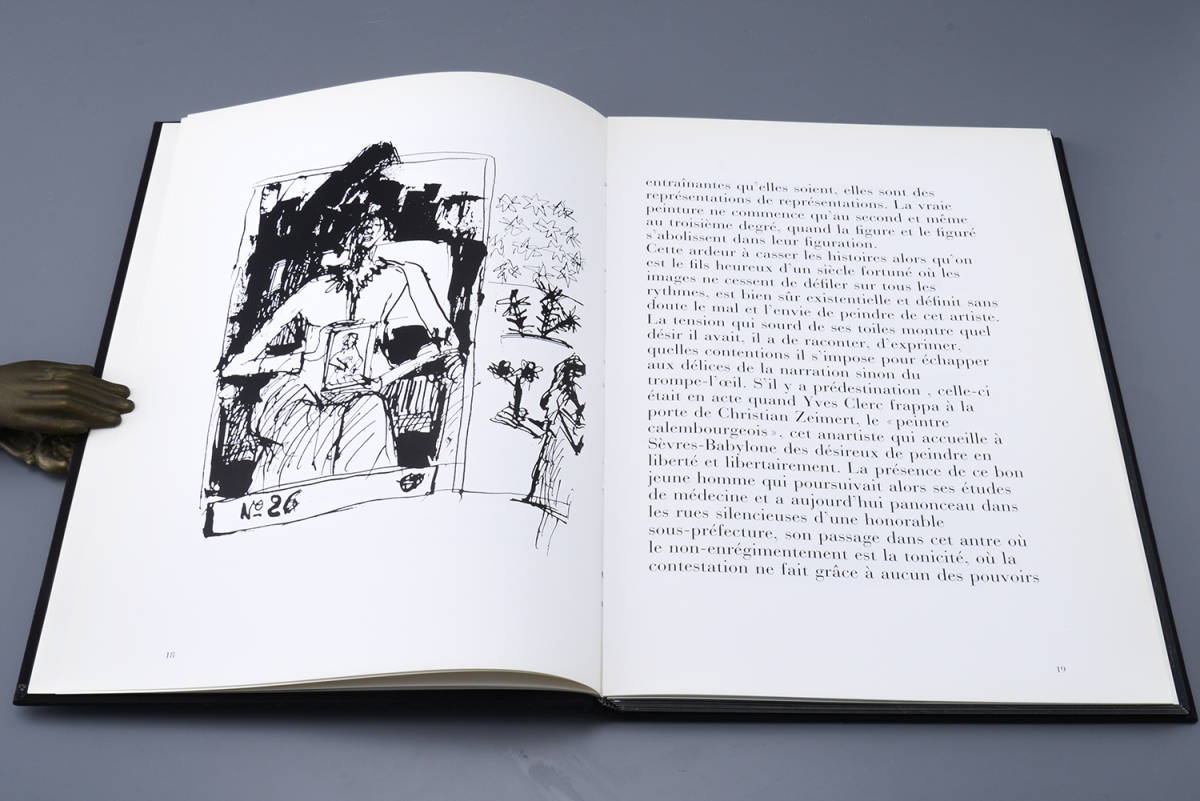 Nº 26
18
entraînantes qu'elles soient, elles sont des
représentations de représentations. La vraie
peinture ne commence qu'au second et même
au troisième degré, quand la figure et le figuré
s'abolissent dans leur figuration.
Cette ardeur à casser les histoires alors qu'on
est le fils heureux d'un siècle fortuné où les
images ne cessent de défiler sur tous les
rythmes, est bien sûr existentielle et définit sans
doute le mal et l'envie de peindre de cet artiste.
La tension qui sourd de ses toiles montre quel
désir il avait, il a de raconter, d'exprimer,
quelles contentions il s'impose pour échapper
aux délices de la narration sinon du
trompe-l'œil. S'il y a prédestination , celle-ci
était en acte quand Yves Clerc frappa à la
porte de Christian Zeimert, le «peintre
calembourgeois», cet anartiste qui accueille à
Sèvres-Babylone des désireux de peindre en
liberté et libertairement. La présence de ce bon
jeune homme qui poursuivait alors ses études
de médecine et a aujourd'hui panonceau dans
les rues silencieuses d'une honorable
sous-préfecture, son passage dans cet antre où
le non-enrégimentement est la tonicité, où la
contestation ne fait grâce à aucun des pouvoirs
19